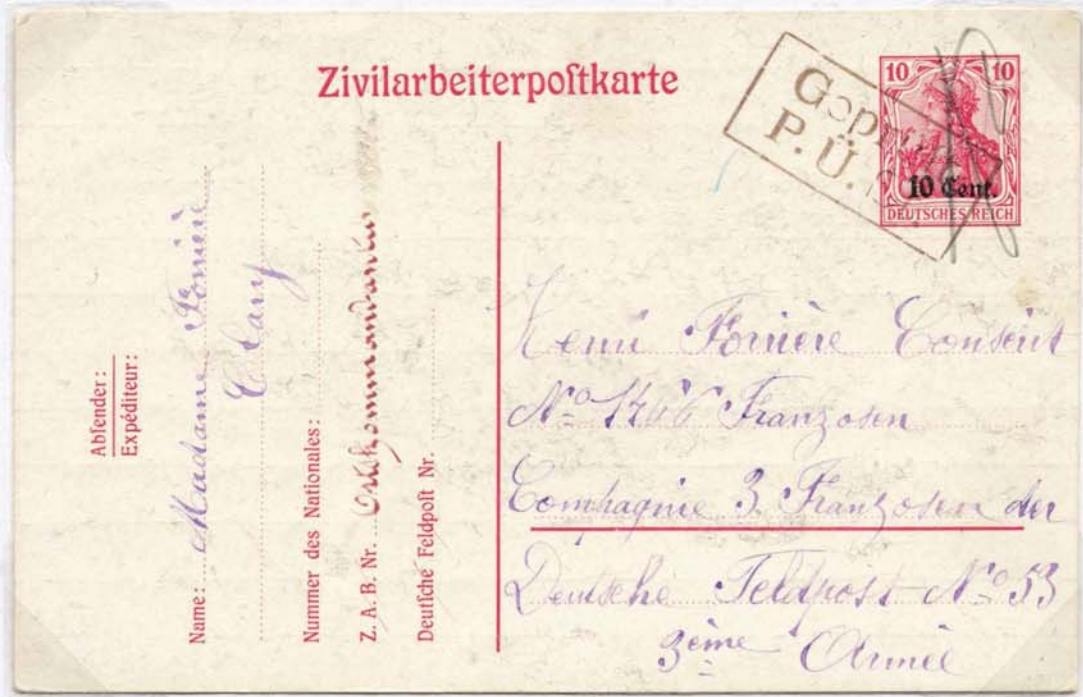 Zivilarbeiterpoſtkarte
Geprüft
P. Ü.
10 10
10 Cent.
DEUTSCHES REICH
Abſender:
Expéditeur:
Name: Madame Forière
Clary
Nummer des Nationales:
Z. A. B. Nr. Ortskommandantur
Deutſche Feldpoſt Nr.
Forière
No 1766 Franzosen
Compagnie 3. Franzosen der
Deutsche Feldpost No 53
3ème Armée